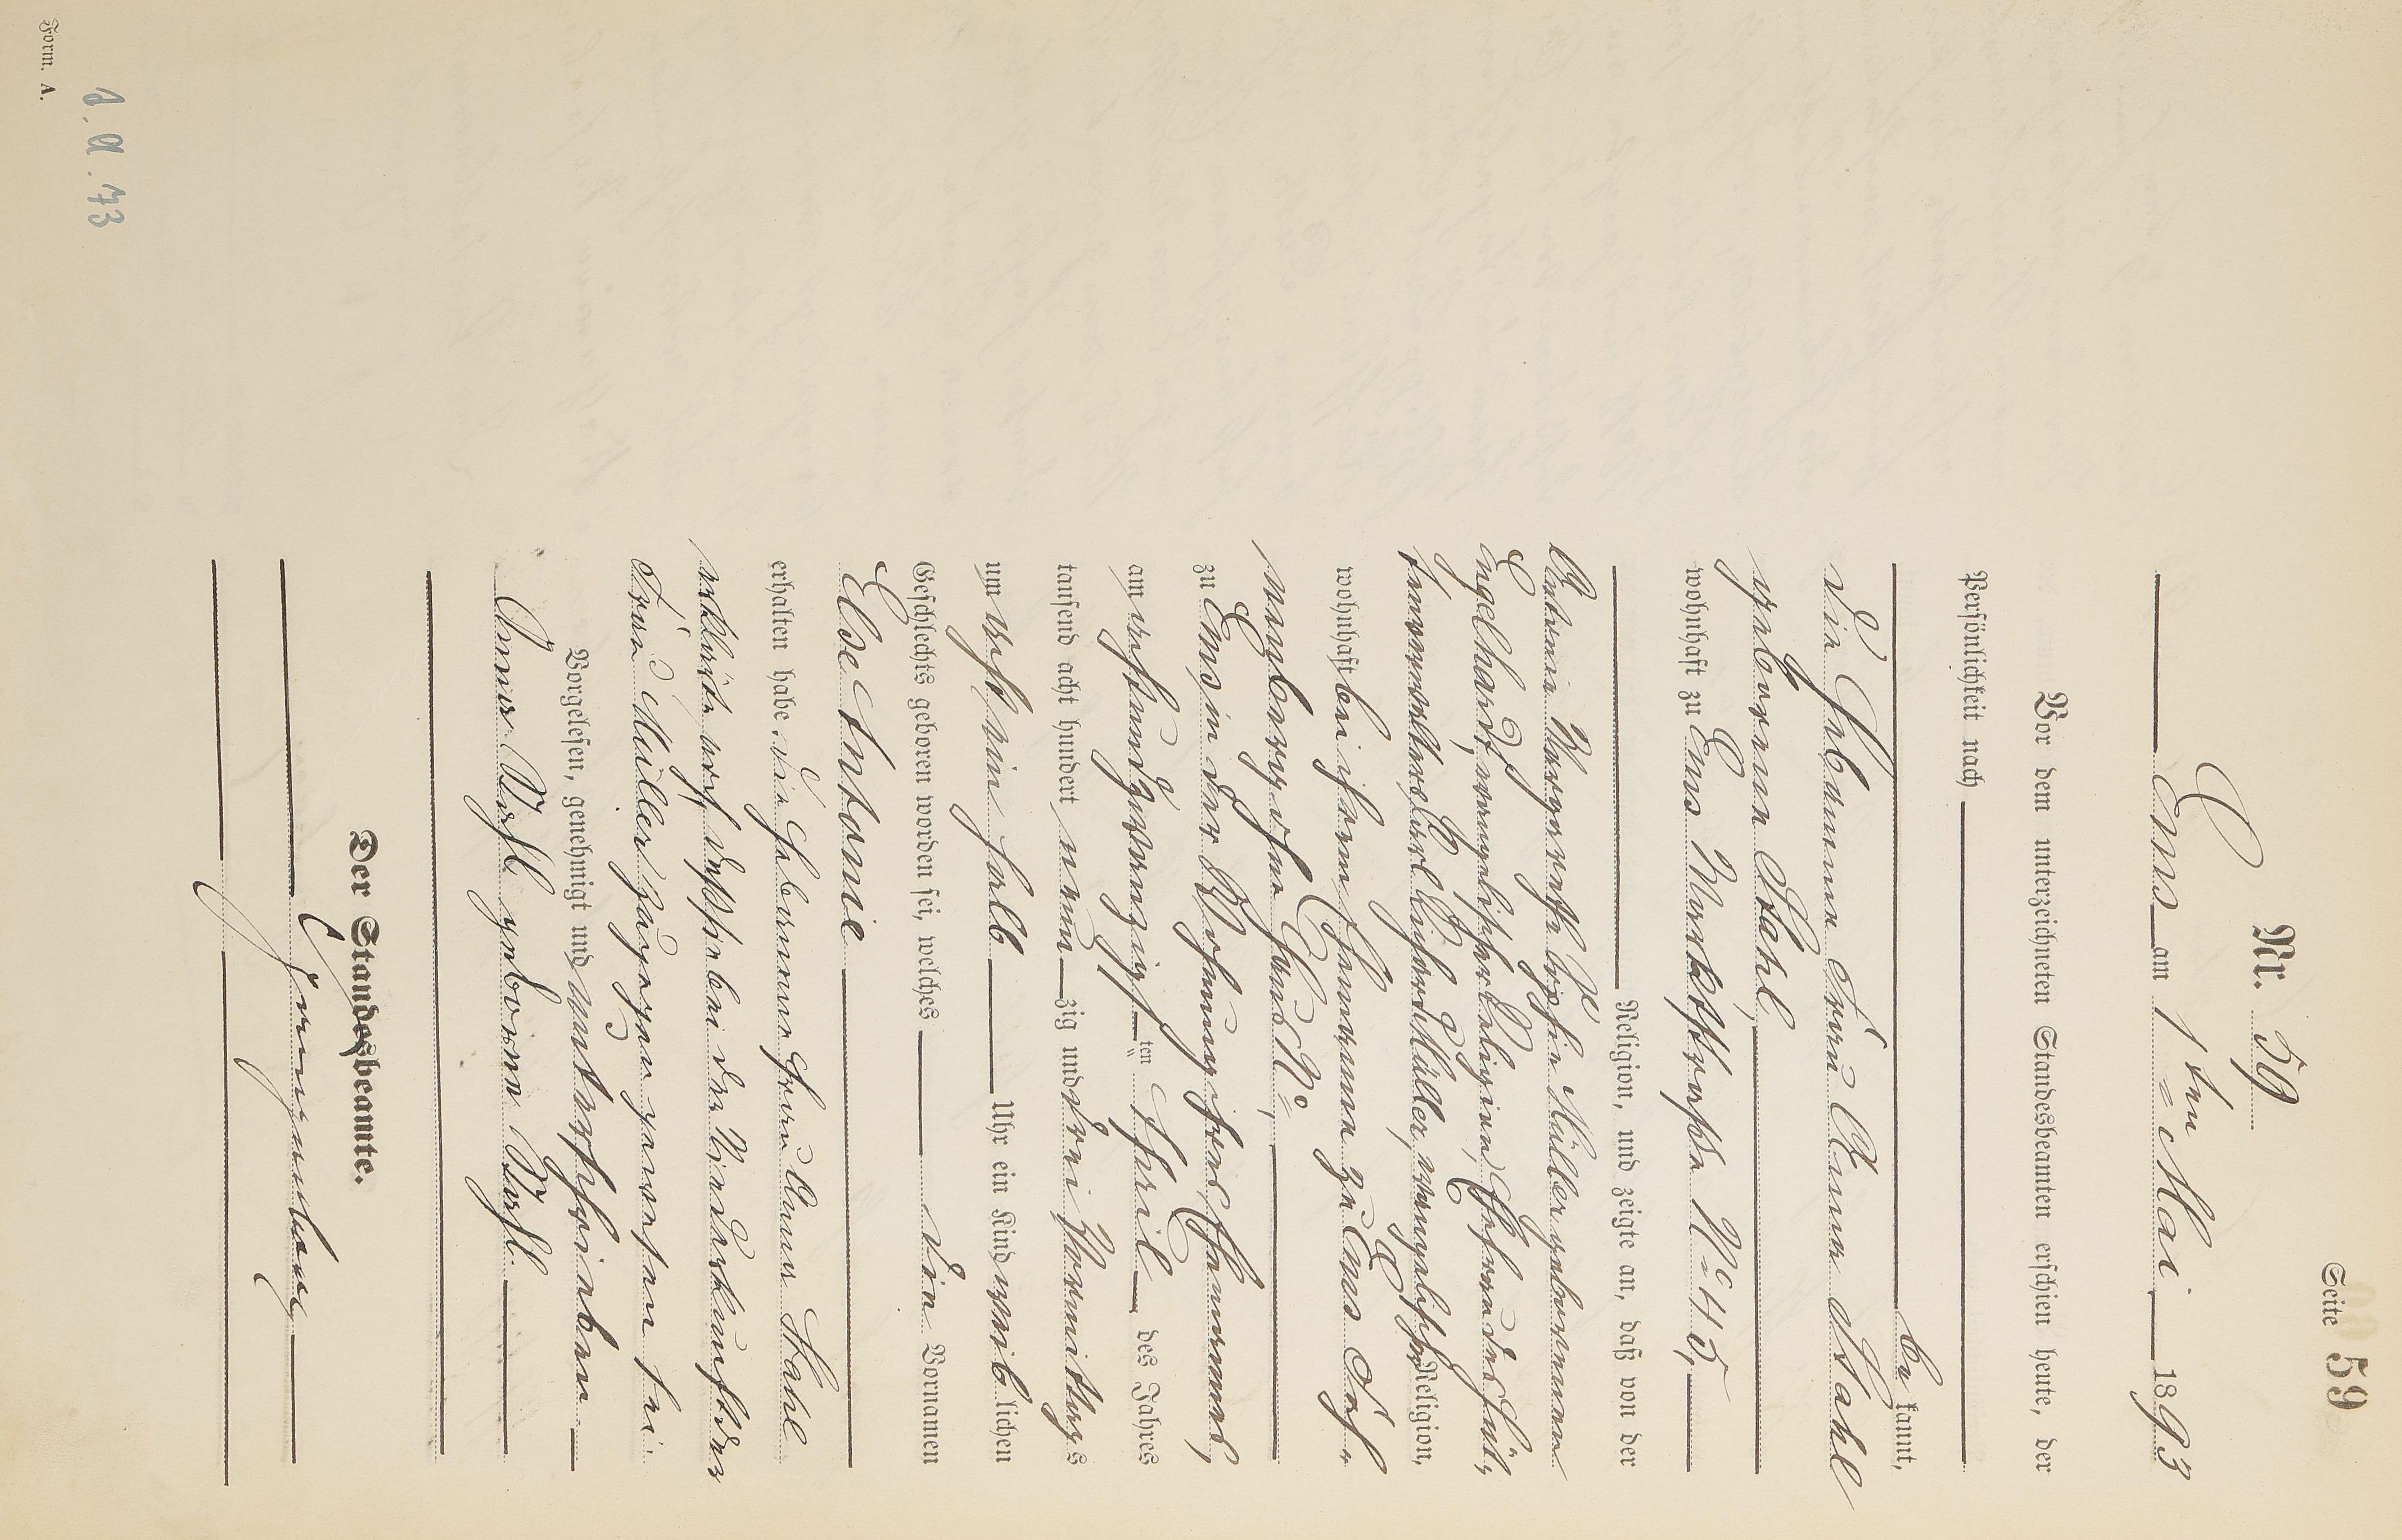 Seite 59
Nr. 59
Ems am 1ten Mai 1893
Vor dem unterzeichneten Standesbeamten erschien heute, der
Persönlichkeit nach
be kannt,
die Hebamme Frau Anna Stahl
geborene Stahl,
wohnhaft zu Ems Marktstraße No 45,
Religion, und zeigte an, daß von der
Antonie Margarethe Sophie Müller geborenen
Engelhardt, evangelischer Religion, Ehefrau des
Carl Eduard Müller, evangelischer Religion,
wohnhaft bei ihrem Ehemann zu Ems
No
zu Ems in der Wohnung ihres Ehemannes,
am achtundzwanzigsten ten April des Jahres
tausend acht hundert neun zig und drei Vormittags
um acht ein halb Uhr ein Kind weib lichen
Geschlechts geboren worden sei, welches die Vornamen
Else Antonie
erhalten habe. Die Hebamme Frau Anna Stahl
erklärte noch, daß sie bei der Niederkunft der
Frau Müller zugegen gewesen sei.
Vorgelesen, genehmigt und unterschrieben
Anna Stahl geborne Stahl.
Der Standesbeamte.
Form. A.